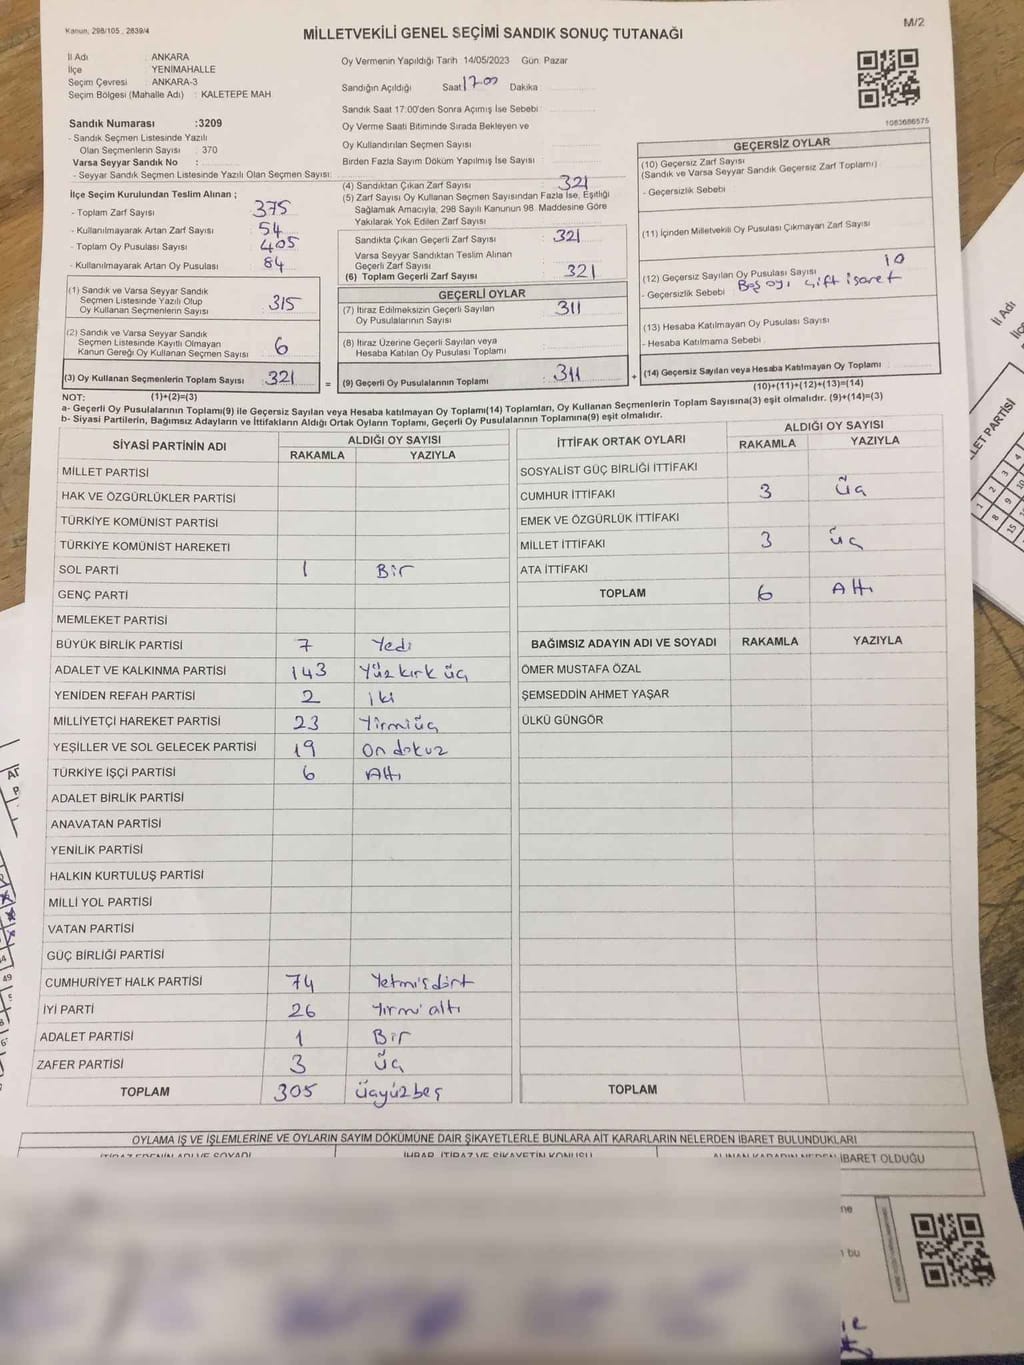 Kanun, 298/105 , 2839/4
MİLLETVEKİLİ GENEL SEÇİMİ SANDIK SONUÇ TUTANAĞI
M/2
İl Adı : ANKARA
İlçe : YENİMAHALLE
Seçim Çevresi : ANKARA-3
Seçim Bölgesi (Mahalle Adı) : KALETEPE MAH.
Sandık Numarası :3209
- Sandık Seçmen Listesinde Yazılı
Olan Seçmenlerin Sayısı : 370
Varsa Seyyar Sandık No :
- Seyyar Sandık Seçmen Listesinde Yazılı Olan Seçmen Sayısı:
Oy Vermenin Yapıldığı Tarih 14/05/2023 Gün: Pazar
Sandığın Açıldığı Saat 17:00 Dakika
Sandık Saat 17:00'den Sonra Açımış İse Sebebi :
Oy Verme Saati Bitiminde Sırada Bekleyen ve
Oy Kullandırılan Seçmen Sayısı
Birden Fazla Sayım Döküm Yapılmış İse Sayısı
1083686575
İlçe Seçim Kurulundan Teslim Alınan ;
- Toplam Zarf Sayısı 375
- Kullanılmayarak Artan Zarf Sayısı 54
- Toplam Oy Pusulası Sayısı 405
- Kullanılmayarak Artan Oy Pusulası 84
(1) Sandık ve Varsa Seyyar Sandık
Seçmen Listesinde Yazılı Olup
Oy Kullanan Seçmenlerin Sayısı 315
(2) Sandık ve Varsa Seyyar Sandık
Seçmen Listesinde Kayıtlı Olmayan
Kanun Gereği Oy Kullanan Seçmen Sayısı 6
(3) Oy Kullanan Seçmenlerin Toplam Sayısı 321
(4) Sandıktan Çıkan Zarf Sayısı 321
(5) Zarf Sayısı Oy Kullanan Seçmen Sayısından Fazla İse, Eşitliği
Sağlamak Amacıyla, 298 Sayılı Kanunun 98. Maddesine Göre
Yakılarak Yok Edilen Zarf Sayısı
Sandıkta Çıkan Geçerli Zarf Sayısı 321
Varsa Seyyar Sandıktan Teslim Alınan
Geçerli Zarf Sayısı
(6) Toplam Geçerli Zarf Sayısı 321
GEÇERLİ OYLAR
(7) İtiraz Edilmeksizin Geçerli Sayılan
Oy Pusulalarının Sayısı 311
(8) İtiraz Üzerine Geçerli Sayılan veya
Hesaba Katılan Oy Pusulası Toplamı
= (9) Geçerli Oy Pusulalarının Toplamı 311 +
GEÇERSİZ OYLAR
(10) Geçersiz Zarf Sayısı
(Sandık ve Varsa Seyyar Sandık Geçersiz Zarf Toplamı)
- Geçersizlik Sebebi
(11) İçinden Milletvekili Oy Pusulası Çıkmayan Zarf Sayısı
(12) Geçersiz Sayılan Oy Pusulası Sayısı 10
- Geçersizlik Sebebi Boş oy, çift işaret
(13) Hesaba Katılmayan Oy Pusulası Sayısı
- Hesaba Katılmama Sebebi
(14) Geçersiz Sayılan veya Hesaba Katılmayan Oy Toplamı
NOT: (1)+(2)=(3)
(10)+(11)+(12)+(13)=(14)
a- Geçerli Oy Pusulalarının Toplamı(9) ile Geçersiz Sayılan veya Hesaba katılmayan Oy Toplamı(14) Toplamları, Oy Kullanan Seçmenlerin Toplam Sayısına(3) eşit olmalıdır. (9)+(14)=(3)
b- Siyasi Partilerin, Bağımsız Adayların ve İttifakların Aldığı Ortak Oyların Toplamı, Geçerli Oy Pusulalarının Toplamına(9) eşit olmalıdır.
SİYASİ PARTİNİN ADI ALDIĞI OY SAYISI
RAKAMLA YAZIYLA
MİLLET PARTİSİ
HAK VE ÖZGÜRLÜKLER PARTİSİ
TÜRKİYE KOMÜNİST PARTİSİ
TÜRKİYE KOMÜNİST HAREKETİ
SOL PARTİ 1 Bir
GENÇ PARTİ
MEMLEKET PARTİSİ
BÜYÜK BİRLİK PARTİSİ 7 Yedi
ADALET VE KALKINMA PARTİSİ 143 Yüz kırk üç
YENİDEN REFAH PARTİSİ 2 iki
MİLLİYETÇİ HAREKET PARTİSİ 23 Yirmiüç
YEŞİLLER VE SOL GELECEK PARTİSİ 19 On dokuz
TÜRKİYE İŞÇİ PARTİSİ 6 Altı
ADALET BİRLİK PARTİSİ
ANAVATAN PARTİSİ
YENİLİK PARTİSİ
HALKIN KURTULUŞ PARTİSİ
MİLLİ YOL PARTİSİ
VATAN PARTİSİ
GÜÇ BİRLİĞİ PARTİSİ
CUMHURİYET HALK PARTİSİ 74 Yetmişdört
İYİ PARTİ 26 Yirmi altı
ADALET PARTİSİ 1 Bir
ZAFER PARTİSİ 3 Üç
TOPLAM 305 üçyüzbeş
İTTİFAK ORTAK OYLARI ALDIĞI OY SAYISI
RAKAMLA YAZIYLA
SOSYALİST GÜÇ BİRLİĞİ İTTİFAKI
CUMHUR İTTİFAKI 3 Üç
EMEK VE ÖZGÜRLÜK İTTİFAKI
MİLLET İTTİFAKI 3 üç
ATA İTTİFAKI
TOPLAM 6 Altı
BAĞIMSIZ ADAYIN ADI VE SOYADI RAKAMLA YAZIYLA
ÖMER MUSTAFA ÖZAL
ŞEMSEDDİN AHMET YAŞAR
ÜLKÜ GÜNGÖR
TOPLAM
OYLAMA İŞ VE İŞLEMLERİNE VE OYLARIN SAYIM DÖKÜMÜNE DAİR ŞİKAYETLERLE BUNLARA AİT KARARLARIN NELERDEN İBARET BULUNDUKLARI
İTİRAZ EDENİN ADI VE SOYADI İHBAR, İTİRAZ VE ŞİKAYETİN KONUSU ALINAN KARARIN NEDEN İBARET OLDUĞU